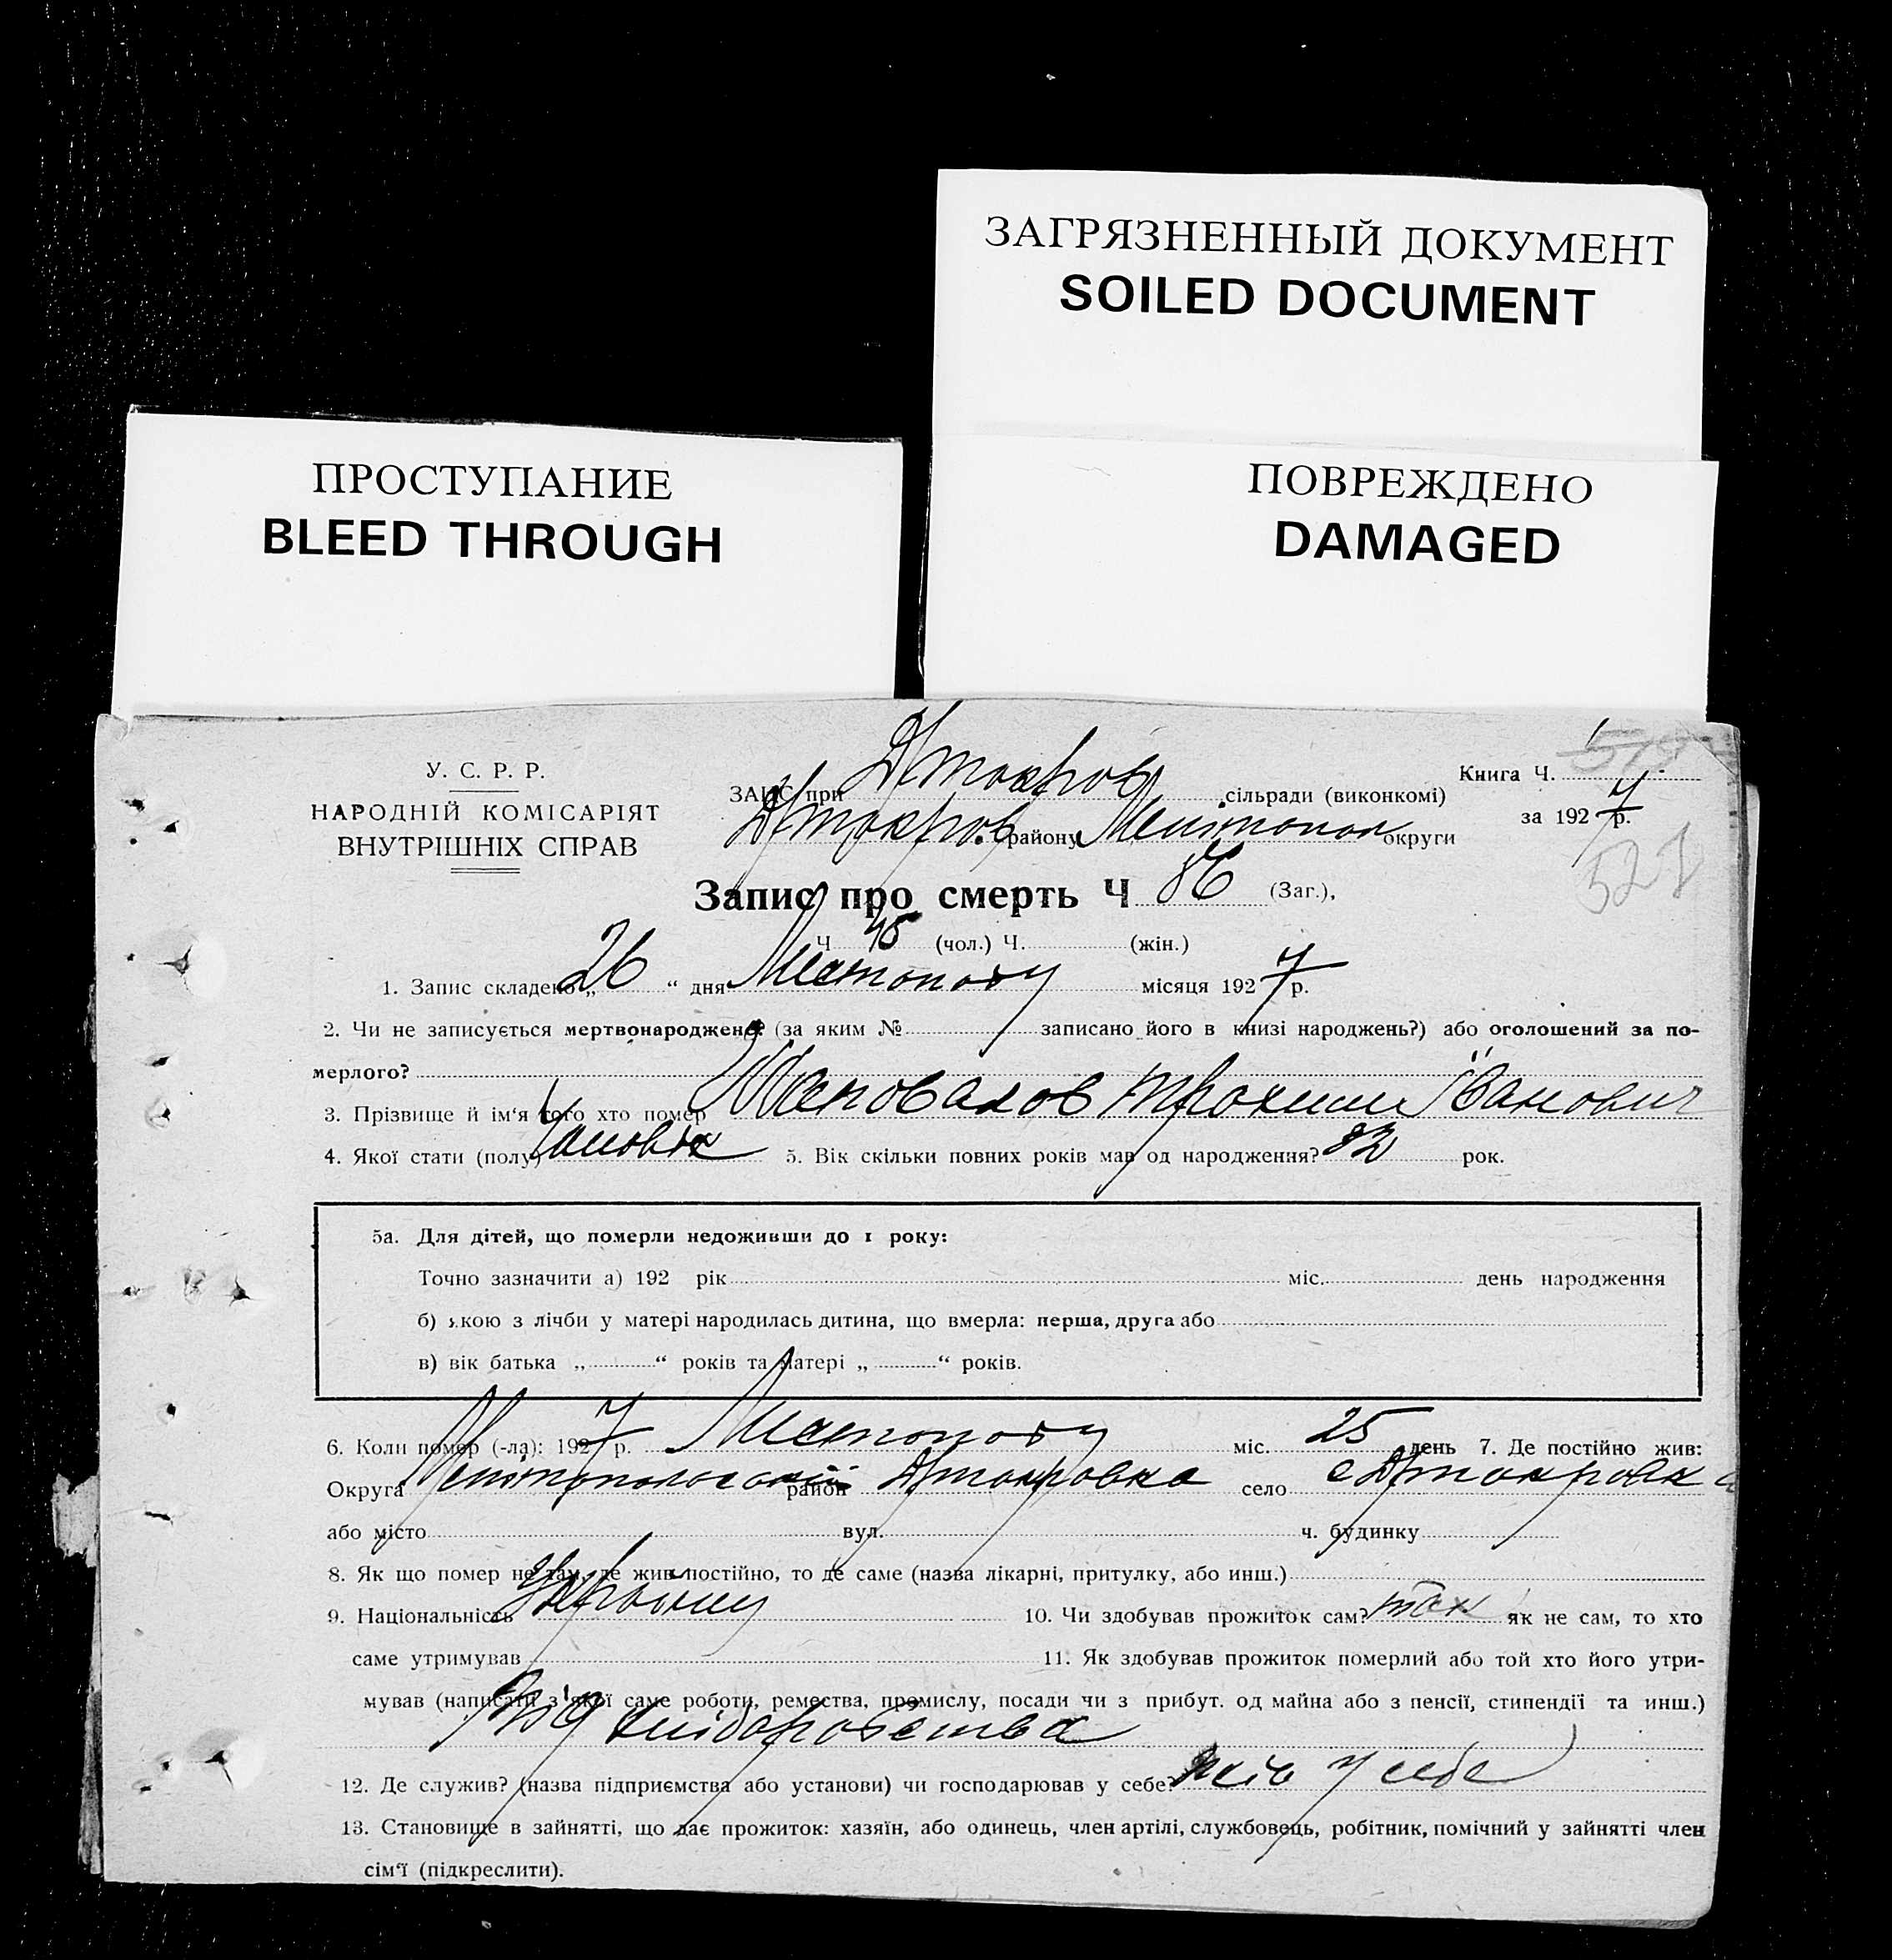 ЗАГРЯЗНЕННЫЙ ДОКУМЕНТ
SOILED DOCUMENT
ПРОСТУПАНИЕ
BLEED THROUGH
ПОВРЕЖДЕНО
DAMAGED
У. С. Р. Р.
НАРОДНІЙ КОМІСАРІЯТ
ВНУТРІШНІХ СПРАВ
ЗАЦС при сільради (виконкомі)
району округи
Книга Ч.
за 1927 р.
521
Запис про смерть Ч 86 (Заг.),
Ч 45 (чол.) Ч. (жін.)
1. Запис складено „ 26 “ дня Листопаду місяця 1927 р.
2. Чи не записується мертвонароджене? (за яким № записано його в книзі народжень?) або оголошений за по-
мерлого?
3. Прізвище й ім‘я того хто помер Шаповалов Трохим Іванович
4. Якої стати (полу) Чоловік 5. Вік скільки повних років мав од народження? 82 рок.
5а. Для дітей, що померли недоживши до 1 року:
Точно зазначити а) 192 рік міс. день народження
б) якою з лічби у матері народилась дитина, що вмерла: перша, друга або
в) вік батька „ “ років та матері „ “ років.
6. Коли помер (-ла): 1927 р. Листопаду міс. 25 день 7. Де постійно жив:
Округа район село
або місто вул. ч. будинку
8. Як що помер не там, де жив постійно, то де саме (назва лікарні, притулку, або инш.)
9. Національність 10. Чи здобував прожиток сам? так як не сам, то хто
саме утримував 11. Як здобував прожиток померлий або той хто його утри-
мував (написати з якої саме роботи, ремества, промислу, посади чи з прибут. од майна або з пенсії, стипендії та инш.)
Від хліборобства
12. Де служив? (назва підприємства або установи) чи господарював у себе? у себе
13. Становище в зайнятті, що дає прожиток: хазяїн, або одинець, член артілі, службовець, робітник, помічний у зайнятті член
сім‘ї (підкреслити).